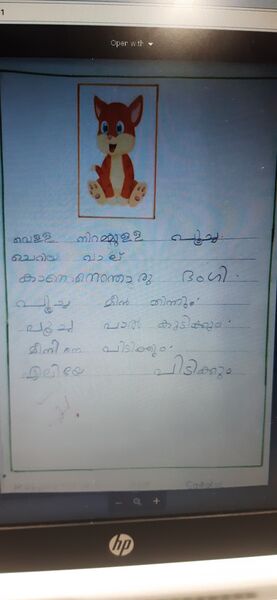 Open with
വെള്ള നിറമുള്ള പൂച്ച
ചെറിയ വാല്
കാണാനെന്തൊരു ഭംഗി.
പൂച്ച മീൻ തിന്നും.
പൂച്ച പാൽ കുടിക്കും.
മീനിനെ പിടിക്കും.
എലിയേ പിടിക്കും
hp